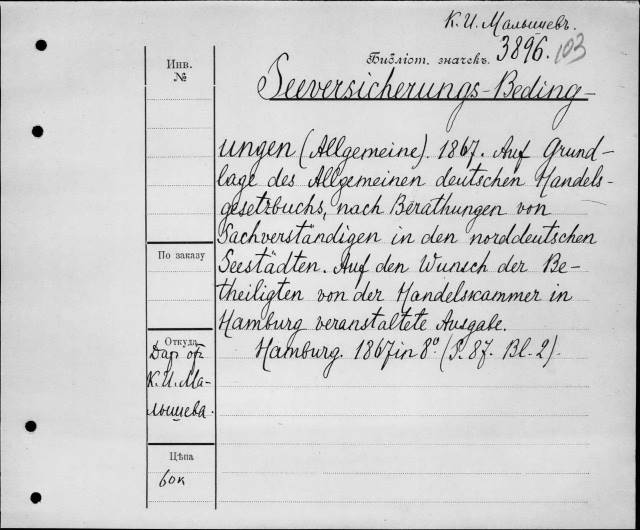 К. И. Малышевъ.
Библіот. значекъ. 3896. 103
Инв.
№
Seeversicherungs-Beding-
ungen (Allgemeine). 1867. Auf Grund-
lage des Allgemeinen deutschen Handels-
gesetzbuchs, nach Berathungen von
Sachverständigen in den norddeutschen
По заказу
Seestädten. Auf den Wunsch der Be-
theiligten von der Handelskammer in
Hamburg veranstaltete Ausgabe.
Откуда
Hamburg. 1867 in 8º. (S. 87. Bl. 2).
Дар от
К. И. Ма-
лышева.
Цѣна
60к